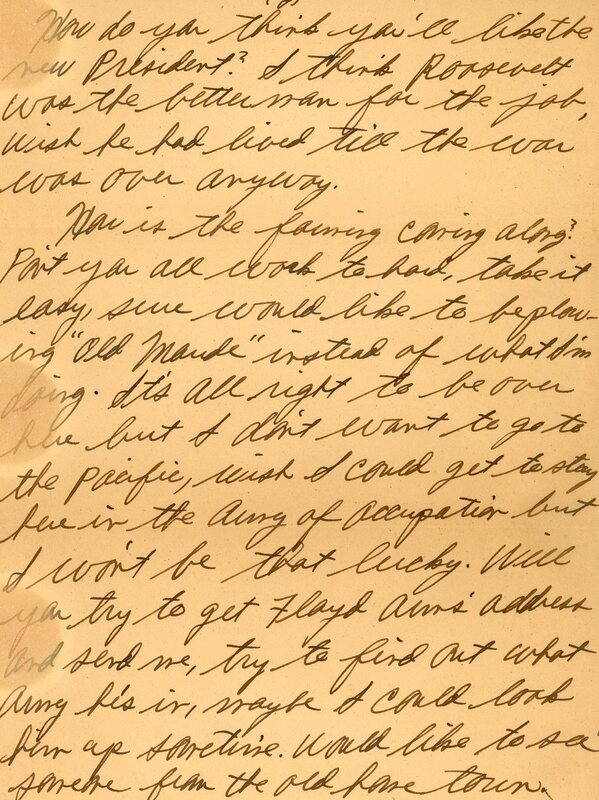 How do you think you'll like the
new President? I think Roosevelt
was the better man for the job,
wish he had lived till the war
was over anyway.
How is the farming coming along?
Don't you all work to hard, take it
easy, sure would like to be plow-
ing "Old Maude" instead of what I'm
doing. It's all right to be over
here but I don't want to go to
the Pacific, wish I could get to stay
here in the Army of Occupation but
I won't be that lucky. Will
you try to get Floyd address
and send me, try to find out what
Army he's in, maybe I could look
him up sometime. Would like to see
someone from the old home town.